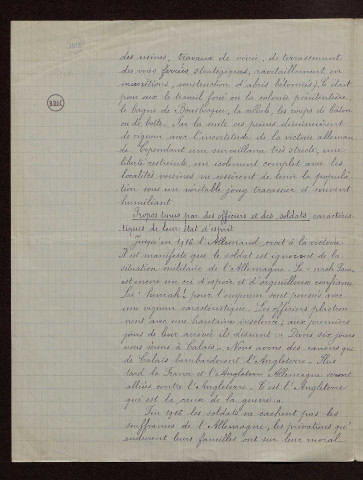 des mines, travaux de voirie, de terrassement
des voies ferrées stratégiques, ravitaillement en
munitions, construction d'abris bétonnés). C'était
pour eux le travail forcé ou la colonie pénitentiaire
le bagne de la cellule, les coups de bâton
ou de botte. Par la suite ces peines diminuèrent
de rigueur avec l'incertitude de la victoire alleman
de. Cependant une surveillance très stricte, une
liberté restreinte, un isolement complet avec les
localités voisines ne cessèrent de tenir la popula
tion sous un véritable joug tracassier et souvent
humiliant
Propos tenus par des officiers et des soldats caractéris
tiques de leur état d'esprit
Jusqu'en 1916 l'Allemand croit à la victoire.
Il est manifeste que le soldat est ignorant de la
situation militaire de l'Allemagne. Le "nach Paris"
est encore un cri d'espoir et d'orgueilleuse confiance
Les "hurrah! pour l'empereur sont poussés avec
une vigueur caractéristique. Les officiers plastron
nent avec une hautaine insolence; aux premiers
jours de leur arrivée ils disaient "Dans six jours
nous serons à Calais. Nous avons des canons qui
de Calais bombarderont l'Angleterre. Plus
tard la France et l'Allemagne seront
alliées contre l'Angleterre. C'est l'Angleterre
qui est la cause de la guerre".
Fin 1916 les soldats ne cachent pas les
souffrances de l'Allemagne, les privations qu'
endurent leurs familles ont sur leur moral